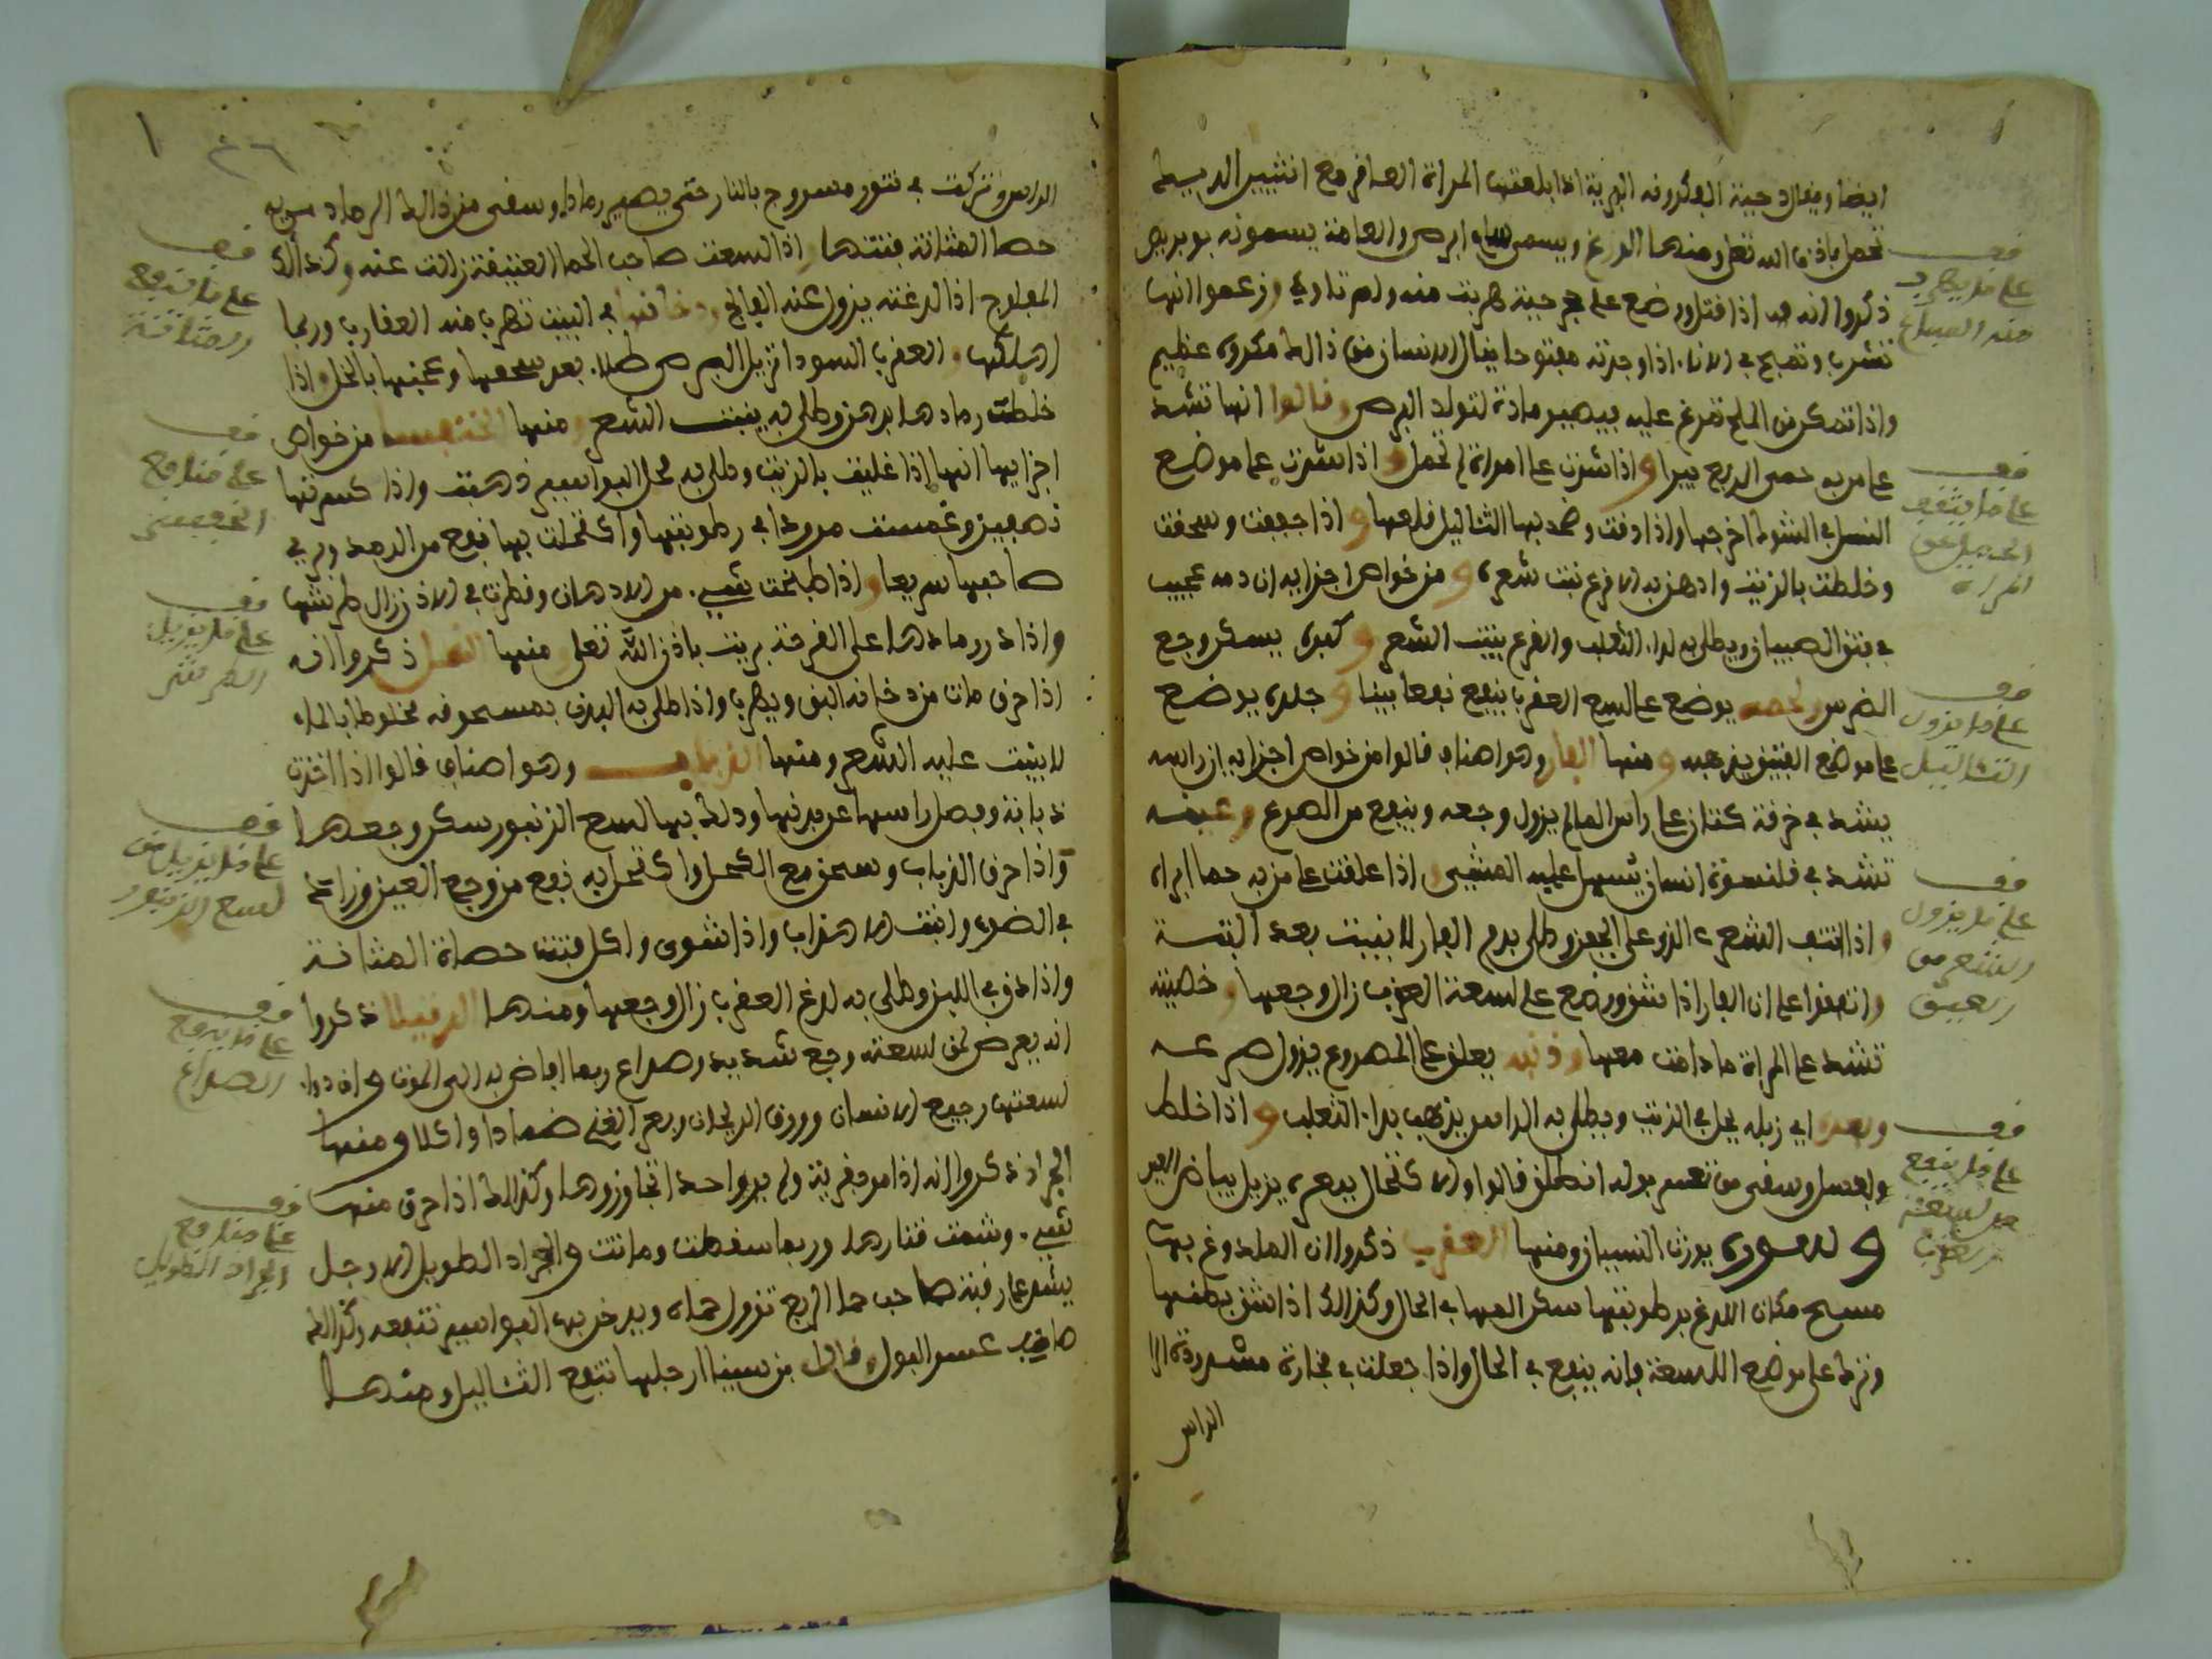 ايضا ويقال حبة البكرونه البرية اذا ابلعتها المراة العاقر مع
تحمل باذن الله تعلى ومنها الوزغ ويسمى سام ابرص والعامة يسمونه بو بريص
ذكروا انه اذا قتل ووضع على جحر حية هربت منه ولم تاوي وزعموا انها
تشرب وتمج في الاناء اذا وجدته مفتوحا ينال الانسان من ذالك مكروه عظيم
واذا تمكن من الملح تمرغ عليه فيصير مادة لتولد البرص وقالوا انها تشد
على من به حمى الربع يبرا واذا شدت على امراة لم تحمل واذا شدت على موضع
النصل او الشوك اخرجها واذا دقت وضمد بها الثاليل قلعها واذا جففت وسحقت
وخلطت بالزيت وادهن به الاقرع نبت شعره ومن خواص اجزايه ان دمه عجيب
في فتق الصبيان ويطلى به لداء الثعلب والقرع ينبت الشعر وكبده يسكن وجع
الضرس ولحمه يوضع على لسع العقرب ينفع نفعا بينا وجلده يوضع
على موضع الفتق يذهبه ومنها الفار وهو اصناف قالوا من خواص اجزايه ان راسه
يشد في خرقة كتان على راس المالم يزول وجعه وينفع من الصرع وعينه
تشد في قلنسوة انسان يسهل عليه المشي واذا علقت على من به حما ابراه
واذا نتف الشعر الذي على الجفن وطلى بدم الفار لا ينبت بعد البتة
واتفقوا على ان الفار اذا شق ووضع على لسعة العقرب زال وجعها وخصيته
تشد على المراة ما دامت معها وذنبه يعلق على المصروع يزول صرعه
وبعره اي زبله يحل في الزيت ويطلى به الراس يذهب بداء الثعلب واذا خلط
بالعسل وسقى من تعسر بوله انطلق قالوا والاكتحال ببعره يزيل بياض العين
و يورث النسيان ومنها العقرب ذكروا ان الملدوغ بها
مسح مكان اللدغ برطوبتها سكن المها في الحال وكذالك اذا شق بطنها
وترك على موضع اللسعة فانه ينفع في الحال واذا جعلت في فخارة مشدودة
الراس
وقف على ما يهرب منه
وقف على ما ينفع
وقف على ما يزول الثاليل
وقف على ما يزول الشعر من العين
وقف على ما ينفع من لسعة العقرب
الراس وتركت في تنور مسروج بالنار حتى يصير رمادا وسقى من ذالك الرماد من به
حصا المثانة فتتها واذا لسعت صاحب الحما العتيقة زالت عنه وكذالك
المفلوج اذا لدغته يزول عنه الفالج ودخانها في البيت تهرب منه العقارب وربما
اهلكها والعقرب السودا تزيل البرص طلاء بعد سحقها وعجنها بالخل واذا
خلطت رمادها بدهن وطلى به ينبت الشعر ومنها الخنفس من خواص
اجزايها انها اذا غليت بالزيت وطلى به محل البواسير ذهبت واذا كسرتها
نصفين وغمست مرودا في رطوبتها واكتحلت بها نفع من الرمد وبري
صاحبها سريعا واذا طبخت بشيء من الادهان وقطرت في الاذن زال طرشها
واذا ذرر رمادها على القرحة بريت باذن الله تعلى ومنها ذكروا انه
اذا حرق مات من دخانه البق ويهرب واذا طلى به البدن بمسحوقه مخلوطا بالماء
لا يثبت عليه الشعر ومنها الذباب وهو اصناف قالوا اذا اخذت
ذبابة وفصل راسها عن بدنها ودلك بها لسع الزنبور سكن وجعها
واذا حرق الذباب وسحق مع الكحل واكتحل به نفع من وجع العين وزاد
في الضوء وانبت الاهداب واذا شوى واكل فتت حصاة المثانة
واذا دق في اللبن وطلى به لدغ العقرب زال وجعها ومنها الرتيلا ذكروا
انه يعرض لمن لسعته وجع شديد وصداع ربما افاض به الى الموت وان دواء
لسعتها رجيع الانسان وورق الريحان وبعر الغنم ضمادا واكلا ومنها
الجراد ذكروا انه اذا مر بقرية ولم ير واحدا تجاوزوها وكذالك اذا حرق منها
شيء وشمت قتارها وربما سقطت وماتت والجراد الطويل الارجل
يشد على رقبة صاحب حما الربع تزول حماه ويدخن بها البواسير تنفعه وكذالك
صاحب عسر البول وقال ابن سينا ارجلها تنفع الثاليل ومنها
وقف على ما ينفع المثانة
وقف على منافع الخنفس
وقف على ما يزيل الطرش
وقف على ما يزيل من لسع الزنبور
وقف على ما ينفع الصداع
وقف على منافع الجراد الطويل